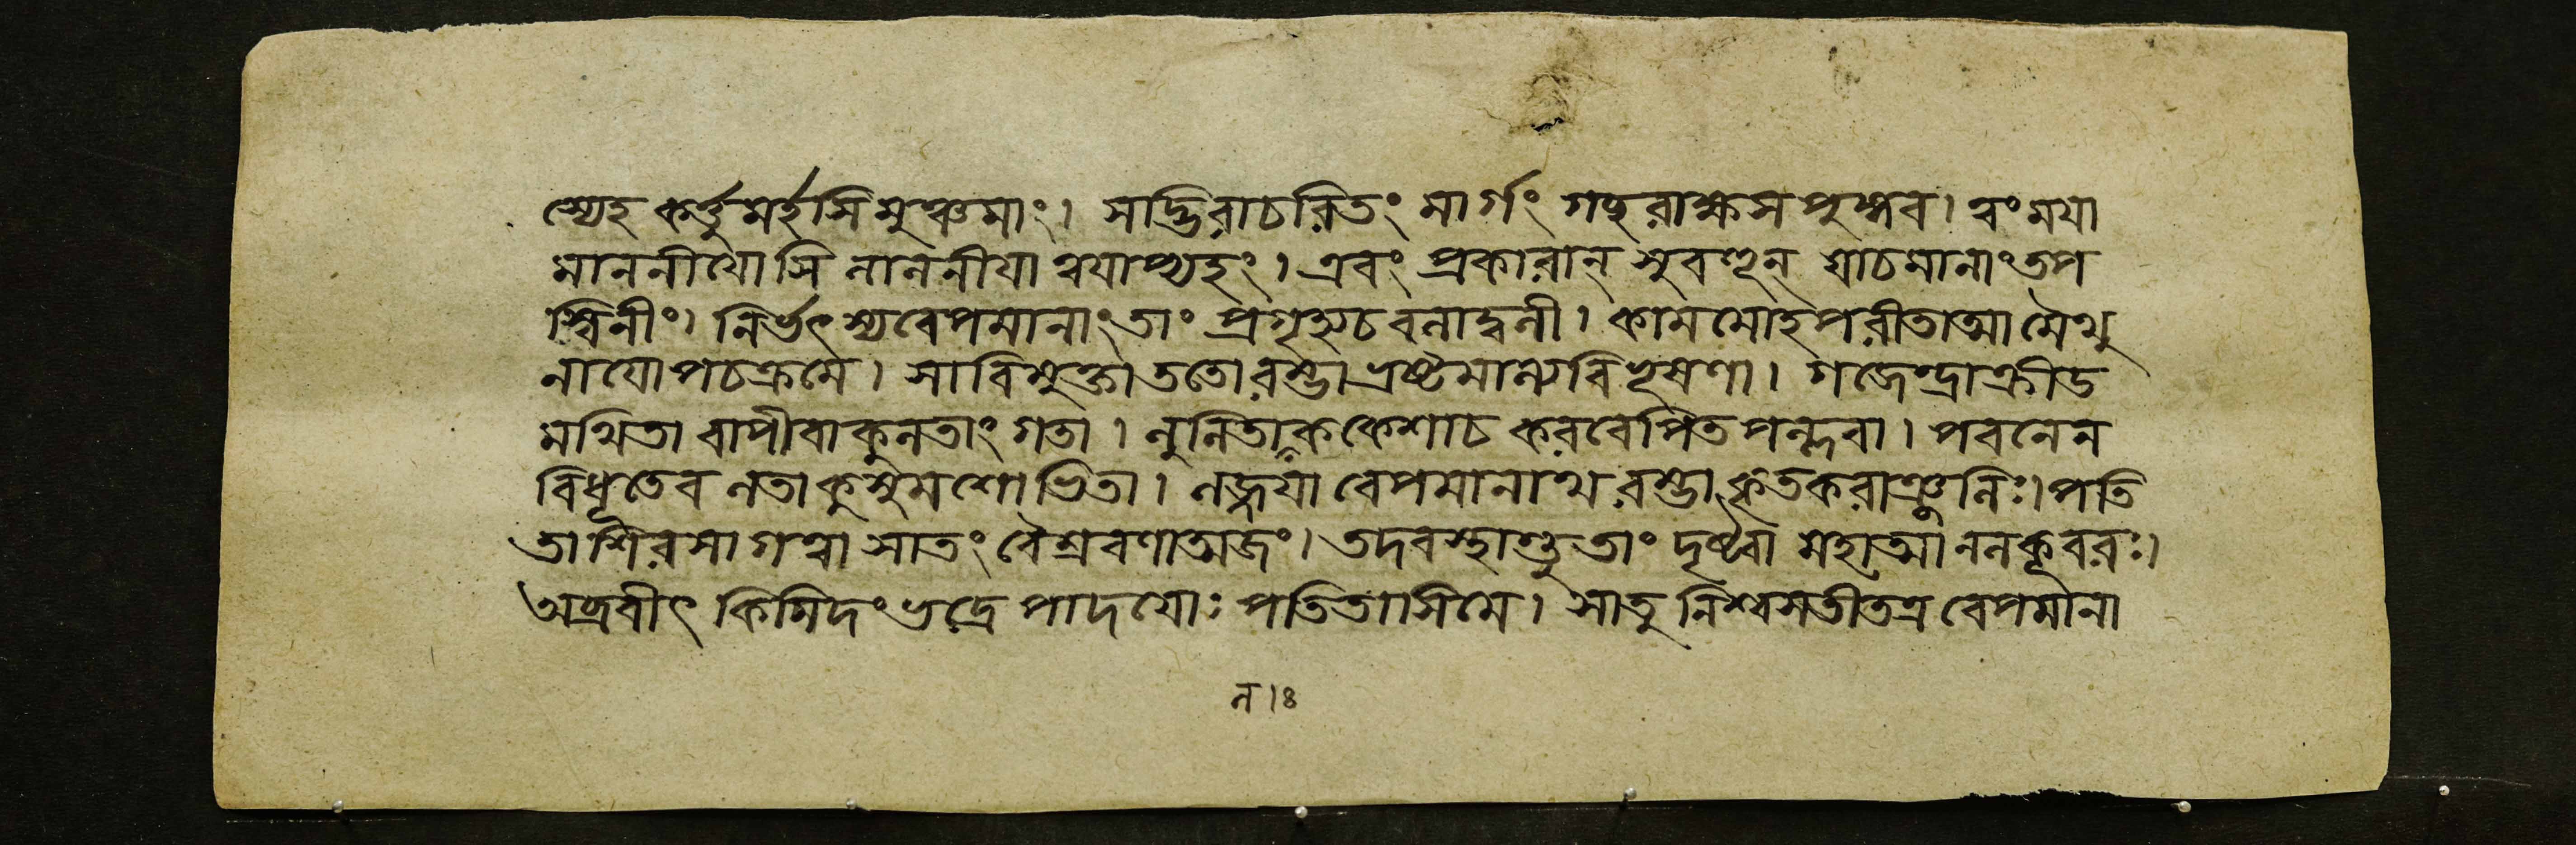 স্যেহ কর্ত্তুমর্হসি মুঞ্চমাং। সদ্ভিরাচরিতং মার্গং গচ্ছ রাক্ষস পুঙ্গব। ত্বং ময়া
মাননীয়োসি নাননীয়া ত্বয়াপ্যহং। এবং প্রকারান্ সুবহূন্ যাচমানাং তপ
স্বিনীং। নির্ভৎস্য বেপমানাং তাং প্রগৃহ্য চ বনাদ্বনী। কাম মোহ পরীতাত্মা মৈথু
নায়োপচক্রমে। সা বিমুক্তা ততো রম্ভা ভ্রষ্টমাল্যবিভূষণা। গজেন্দ্রাক্রীড
মথিতা বাপীবাকুলতাং গতা। লুলিতালক কেশা চ করবেপিত পল্লবা। পবনেন
বিধূতেব লতা কুসুম শোভিতা। লজ্জয়া বেপমানাথ রম্ভা কৃতকরাঞ্জলিঃ। পতি
তা শিরসা গত্বা সা তং বৈশ্রবণাত্মজং। তদবস্থান্তু তাং দৃষ্ট্বা মহাত্মা নলকূবরঃ।
অব্রবীৎ কিমিদং ভদ্রে পাদয়োঃ পতিতাসি মে। সা তু নিশ্বসতী তত্র বেপমানা